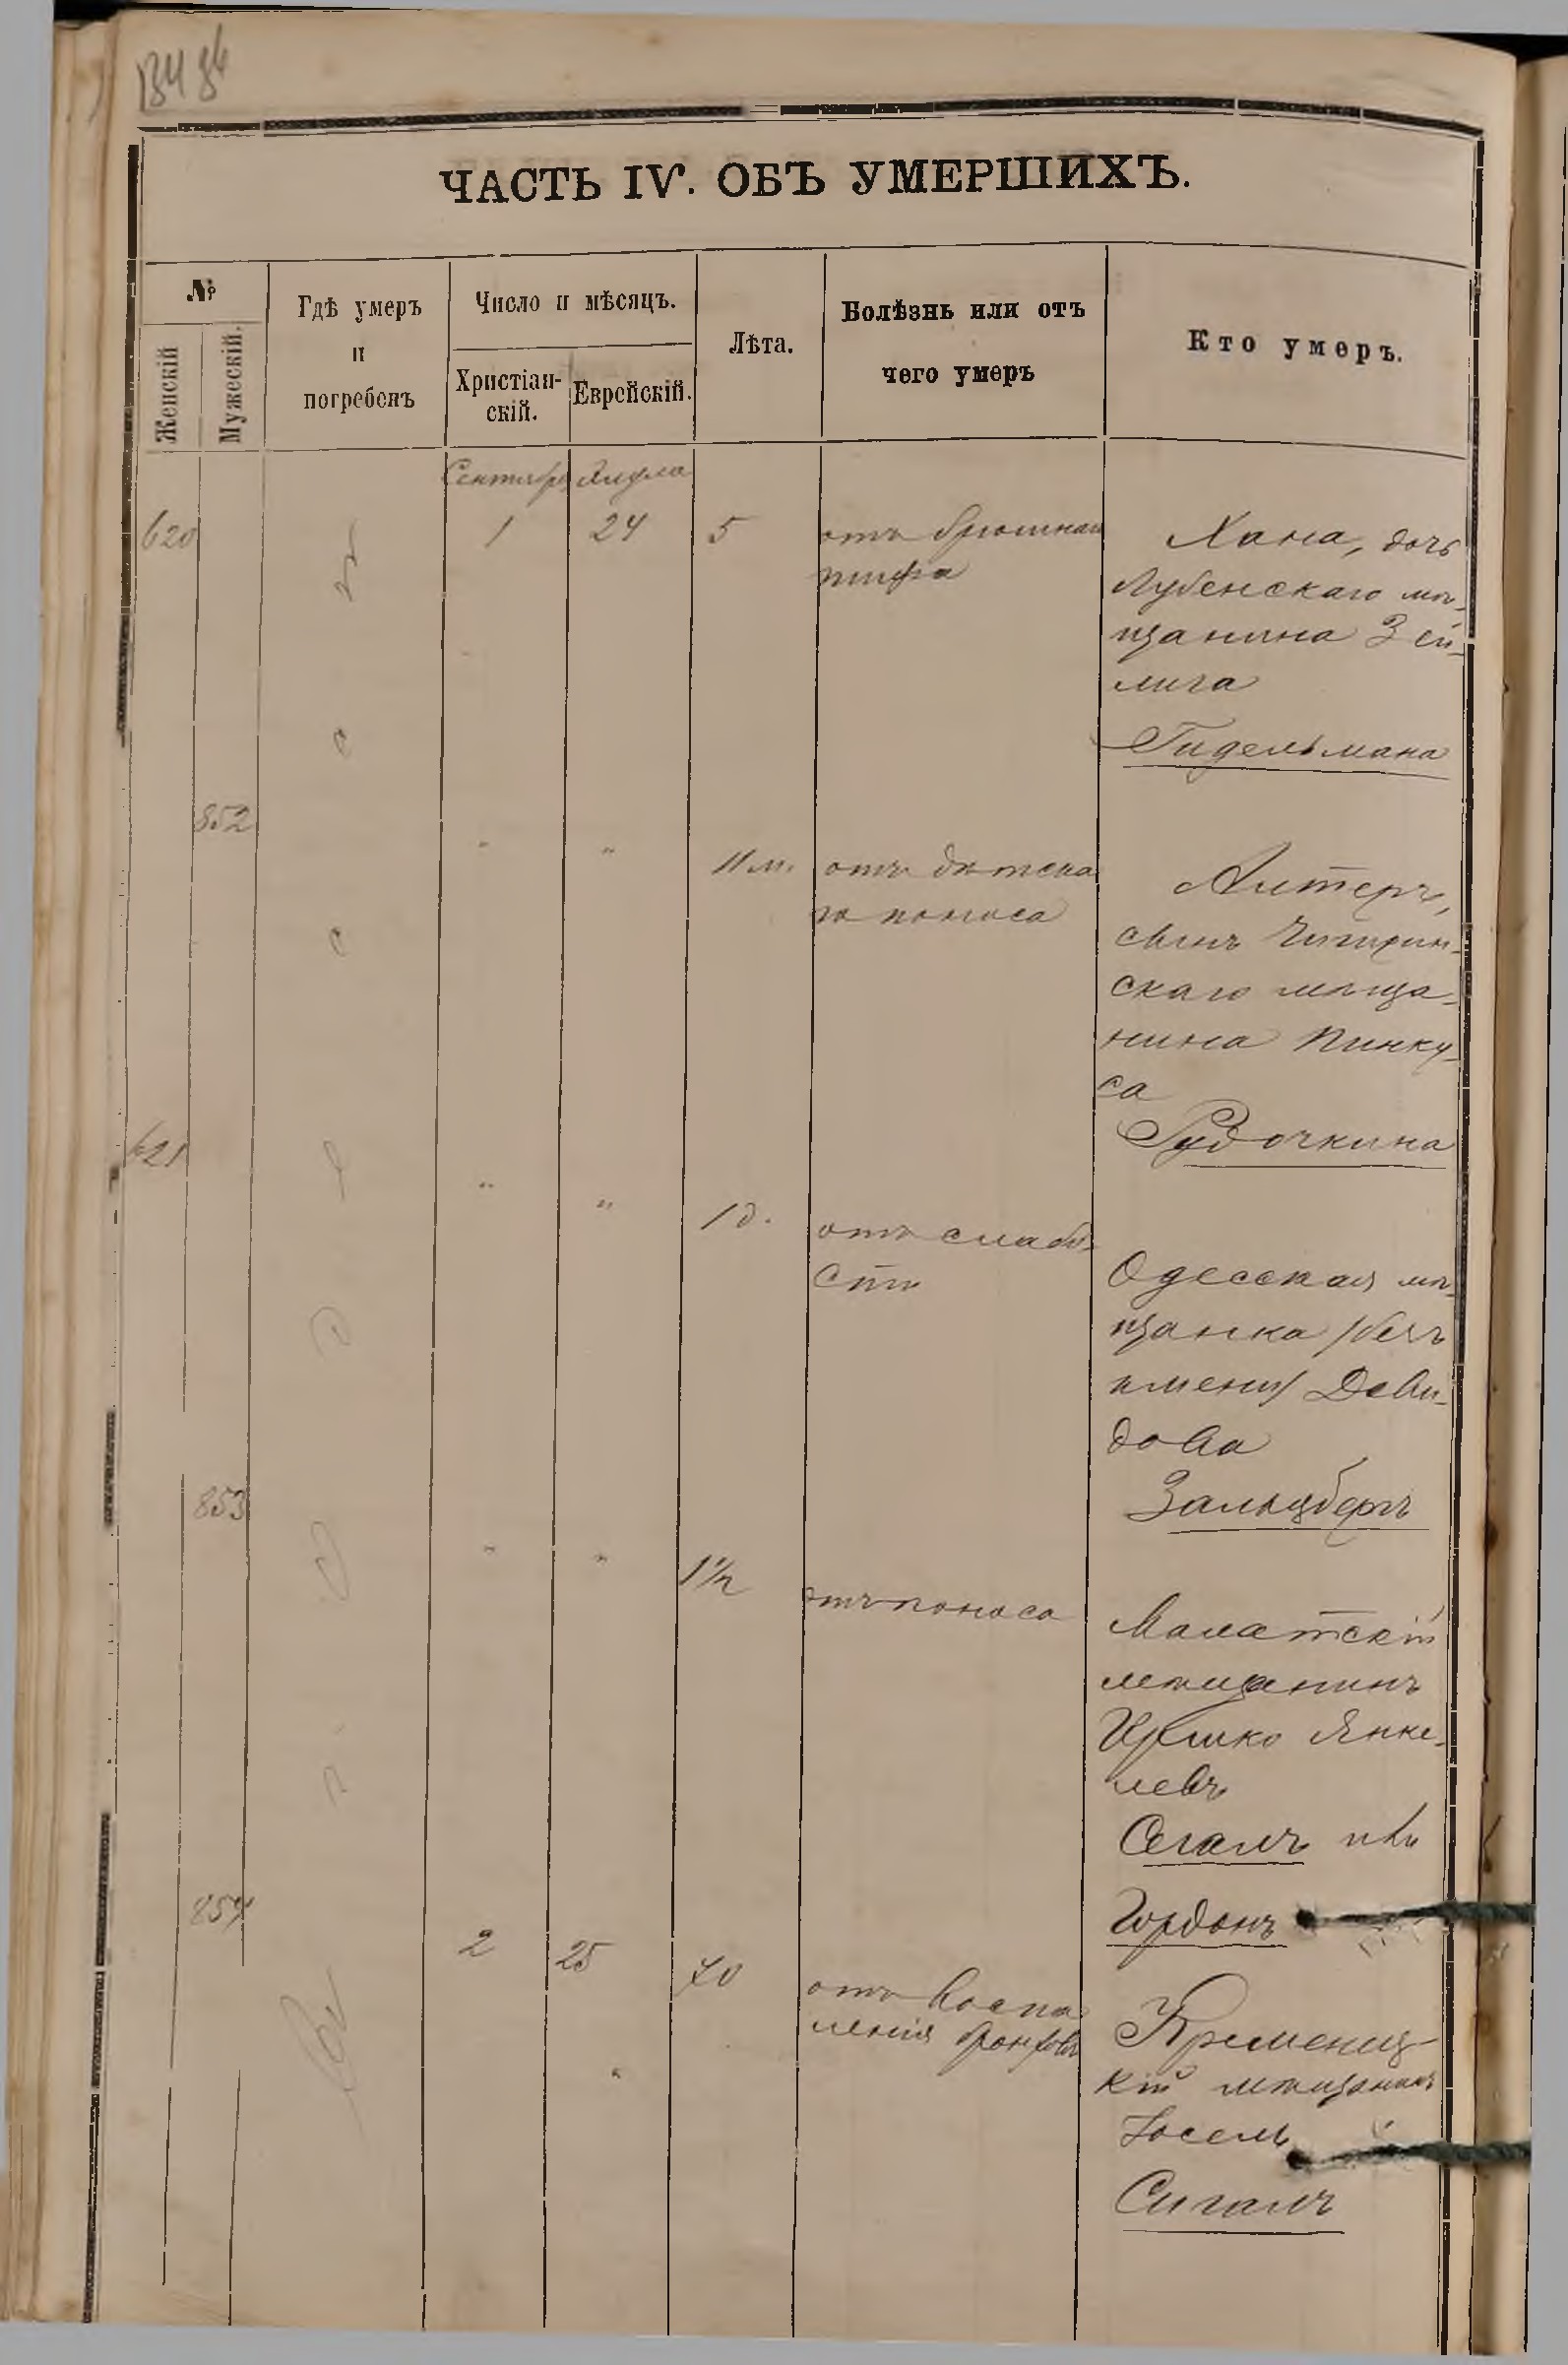 ЧАСТЬ IV. ОБЪ УМЕРШИХЪ.
№
Женскій
Мужескій.
Гдѣ умеръ
и
погребенъ
Число и мѣсяцъ.
Христіан-
скій.
Еврейскій.
Лѣта.
Болѣзнь или отъ
чего умеръ
Кто умеръ.
Сентябр. Элула
620 1 24 5
отъ брюшнаго
тифа
Хана, дочь
Лубенскаго мѣ-
щанина Зей-
лига
Гидельмана
852 " " 11 м.
отъ дѣтска
го поноса
Алтеръ,
сынъ Чигирин-
скаго мѣща-
нина Пинку-
са
Рудочкина
621 " " 1 д.
отъ слабо-
сти
Одесская мѣ-
щанка /безъ
имени/ Дави-
дова
Зальцбергъ
853 " " 1½
отъ поноса
Малатскій
мѣщанинъ
Иршко Янке-
левъ
Сегалъ или
Гордонъ
854 2 25 70
отъ воспа
ленія бронховъ
Кременец-
кій мѣщанинъ
Іосель
Сигалъ